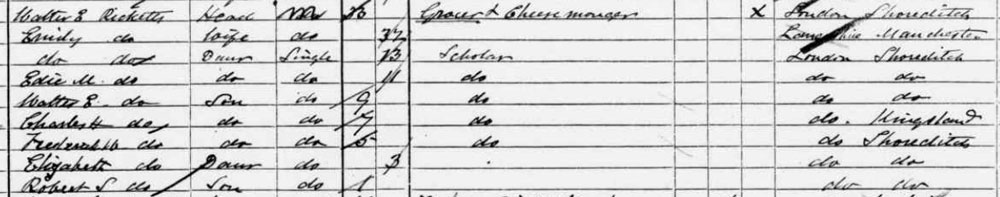 Walter E Ricketts Head Mar 36 Grocer & Cheesemonger x London Shoreditch
Emily do Wife do 37 Lancashire Manchester
do do Daur Single 13 Scholar London Shoreditch
Edie M. do do do 11 do do do
Walter E. do Son do 9 do do do
Charles H do do do 7 do do. Kingsland
Frederick W do do do 5 do do Shoreditch
Elizabeth do Daur do 3 do do
Robert S. do Son do 1 do do